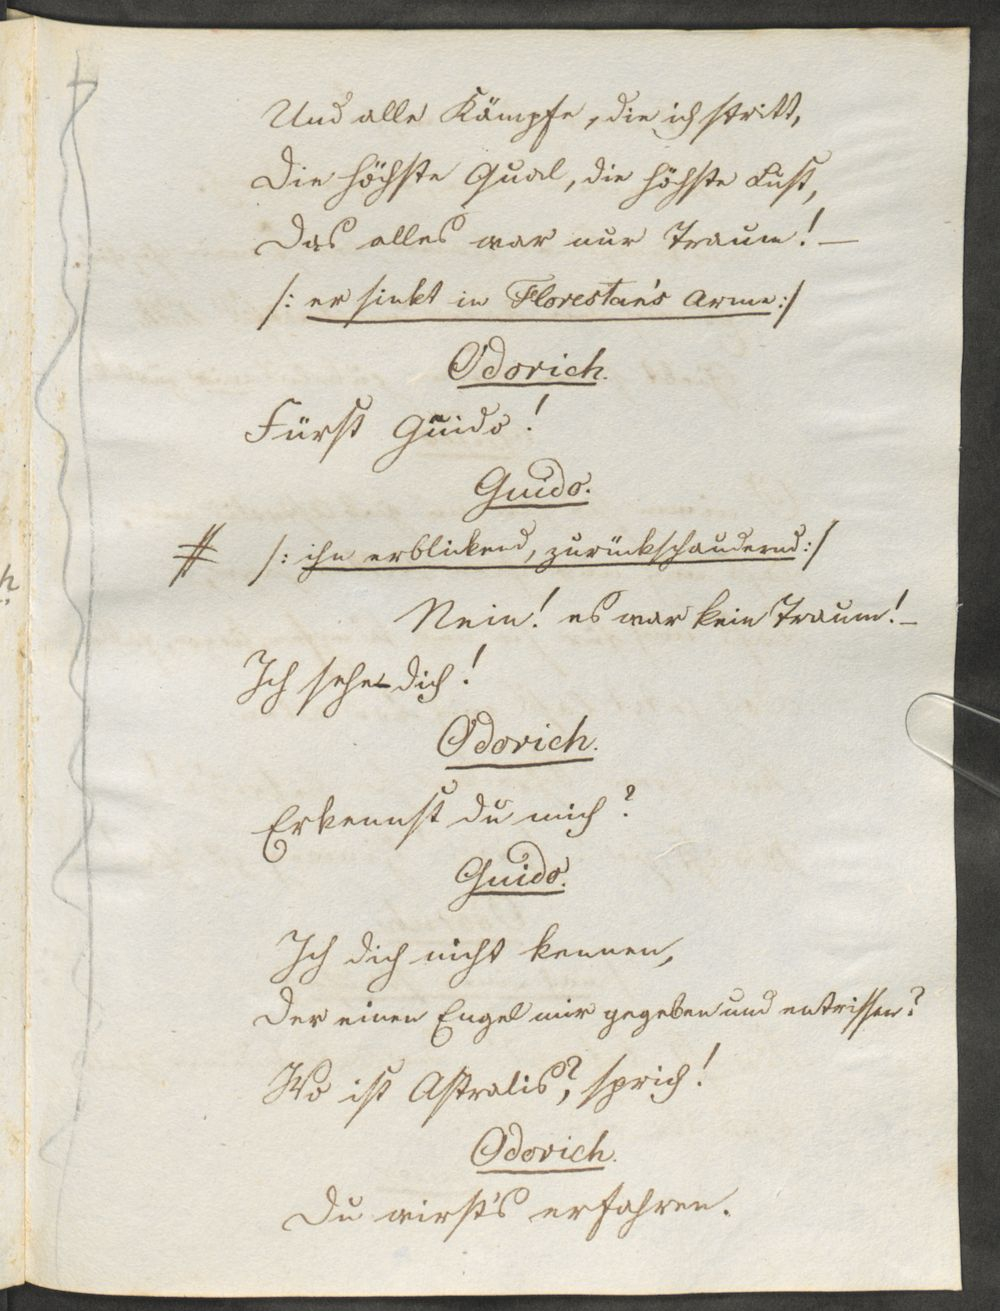 Und alle Kämpfe, die ich stritt,
Die höchste Qual, die höchste Lust,
Das alles war nur Traum! —
/: er sinkt in Florestan's Arme :/
Odorich.
Fürst Guido!
Guido.
# /: ihn erblickend, zurückschaudernd :/
Nein! es war kein Traum! —
Ich sehe dich!
Odorich.
Erkennst du mich?
Guido.
Ich dich nicht kennen,
Der einen Engel mir gegeben und entrissen?
Wo ist Astralis?, sprich!
Odorich.
Du wirst's erfahren.